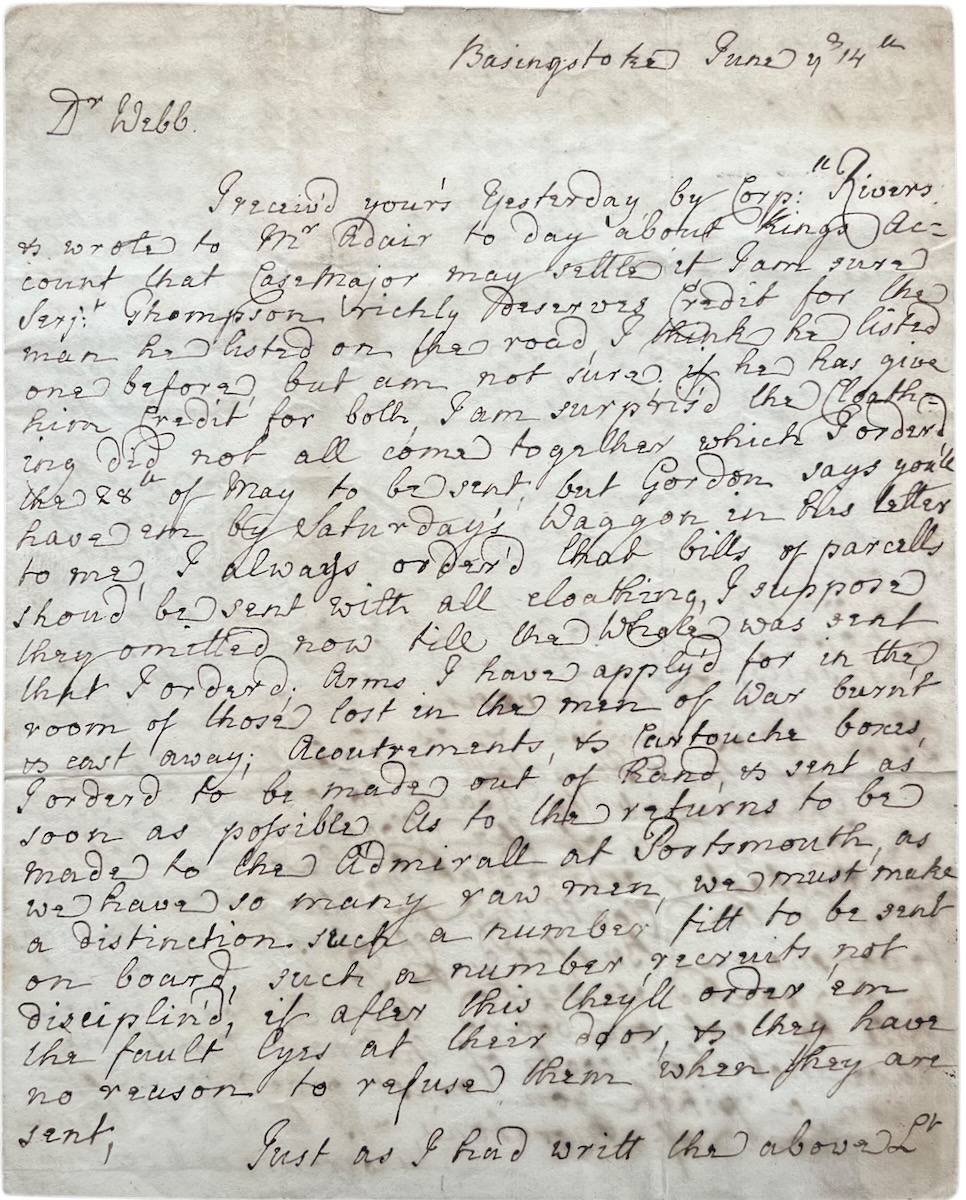 Basingstoke June ye 14th
Dr Webb.
I receiv'd your's Yesterday by Corp:ll Rivers
& wrote to Mr Adair to day about Kings Ac=
count that CaseMajor may settle it I am sure
Serj:t Thompson richly Deserves Credit for the
man he listed on the road, I think he listed
one before, but am not sure, if he has give
him Credit for both, I am surpris'd the Cloath=
ing did not all come together which I order'd
the 28th of May to be sent, but Gordon says you'll
have em by Saturday's Waggon in his letter
to me, I always order'd that bills of parcells
shoud be sent with all cloathing, I suppose
they omitted now till the Whole was sent
that I order'd; Arms I have apply'd for in the
room of those lost in the men of War burn't
& cast away; Acoutrements, & Cartouche boxes,
I orderd to be made out of hand, & sent as
soon as possible As to the returns to be
made to the Admirall at Portsmouth, as
we have so many raw men, we must make
a distinction such a number fitt to be sent
on board, such a number recruits not
disciplin'd, if after this they'll order 'em
the fault lyes at their door, & they have
no reason to refuse them when they are
sent,
Just as I had writt the above Lt